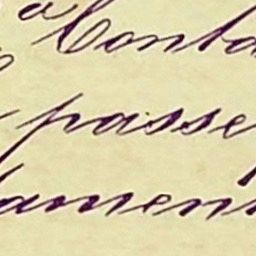 a Conta
passe
lamen